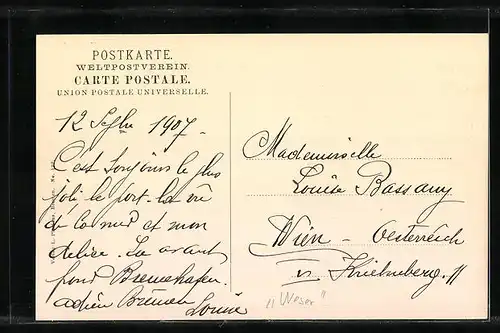 POSTKARTE.
WELTPOSTVEREIN.
CARTE POSTALE.
UNION POSTALE UNIVERSELLE.
12 Septbre 1907.
C'est toujours le plus
joli le port. La vie
de la nuit et mon
délice.
fond Bremerhafen.
adieu Bremen Louise
Mademoiselle
Louise Bassany
Wien - Oesterreich
Kriehuberg. 11
"Weser"